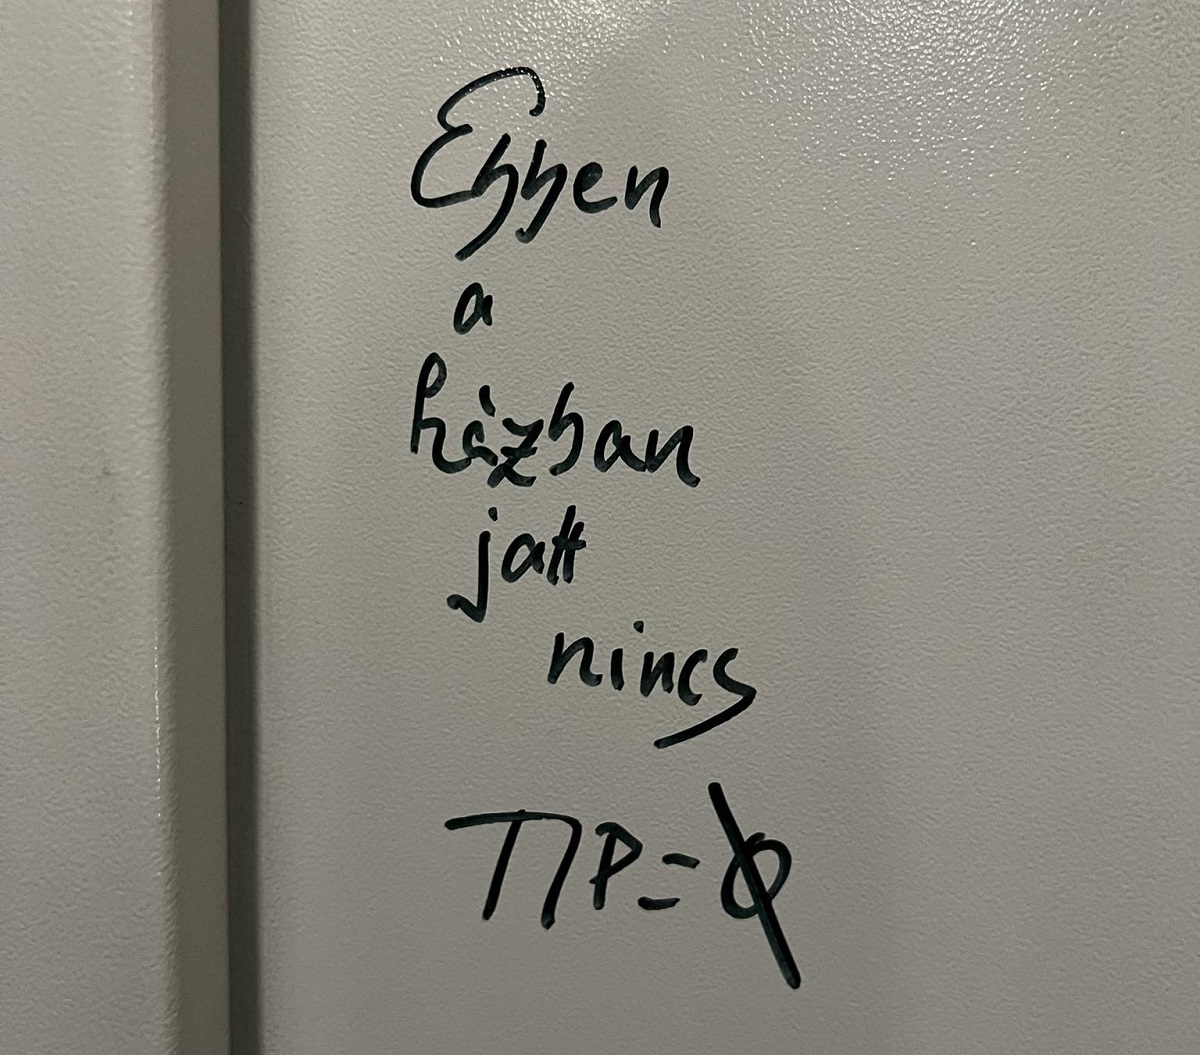 Ebben
a
házban
jatt
nincs
TIP=∅